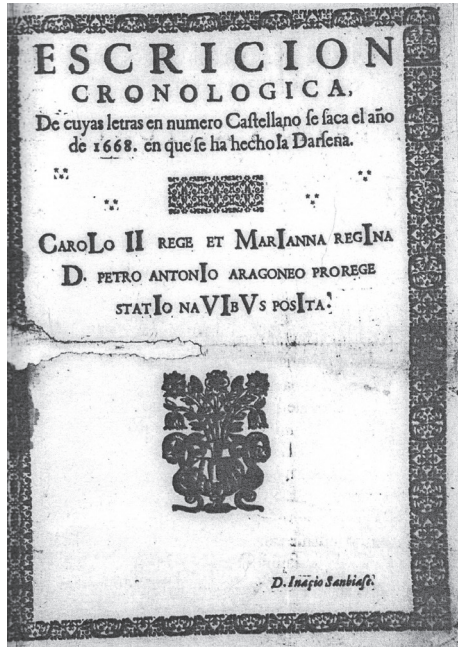 ESCRICION
CRONOLOGICA,
De cuyas letras en numero Caſtellano ſe ſaca el año
de 1668. en que ſe ha hecho la Darſena.
CAROLO II REGE ET MARIANNA REGINA
D. PETRO ANTONIO ARAGONEO PROREGE
STATIO NAVIBVS POSITA.
D. Inaçio Sanbiaſe.